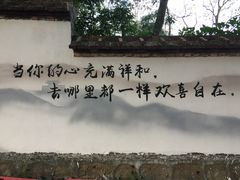 当你的心充满祥和，
去哪里都一样欢喜自在．